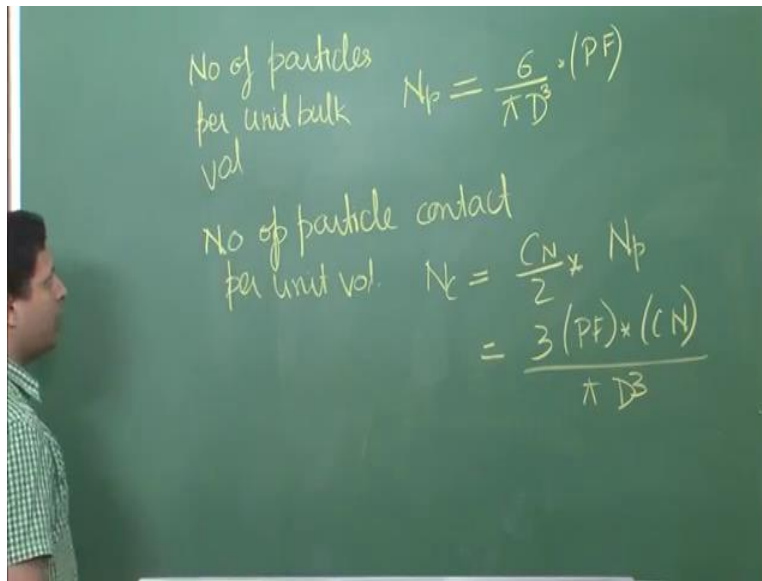 No of particles
per unit bulk
vol
Np = 6/πD³ · (PF)
No of particle contact
per unit vol. Nc = CN/2 * Np
= 3(PF)*(CN)/πD³